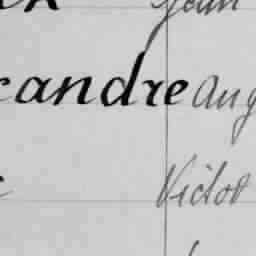 Jean
candre Aug
Victor